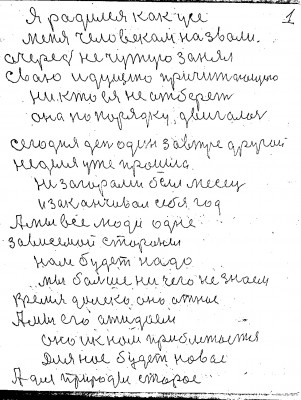 1
Я радился как все
меня человекам назвали.
очеред не чужую занял
сваю идущею причитающею
ни кто ея не атберет
она по порядку, двигалас
сегодня ден один завтре другой
неделя уже прошла
не за горами был месец
и заканчивал себя год
А мы все люди одне
зависемой стараны
нам будет надо
мы болше ни чего не знаем
Время далеко, оно атнас
А мы его ажидаем
оно ик нам приблежается
Для нас будет новое
А для природы старое